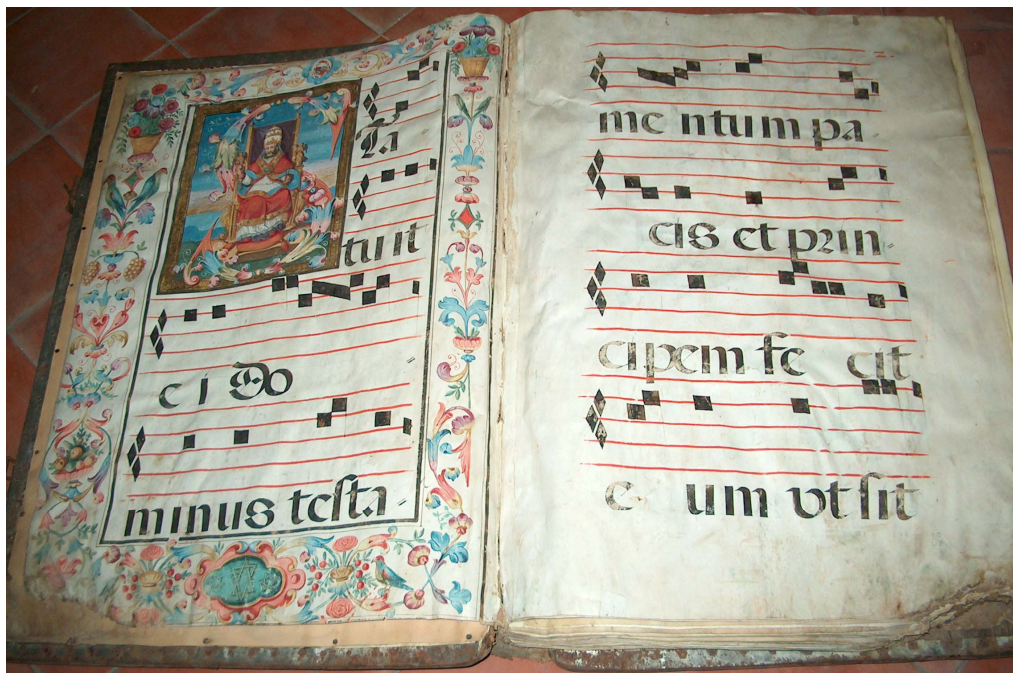 Ta
tuit
e i Do
minus teſta-
me ntum pa
cis et prin-
cipem fe cit
e um vt ſit